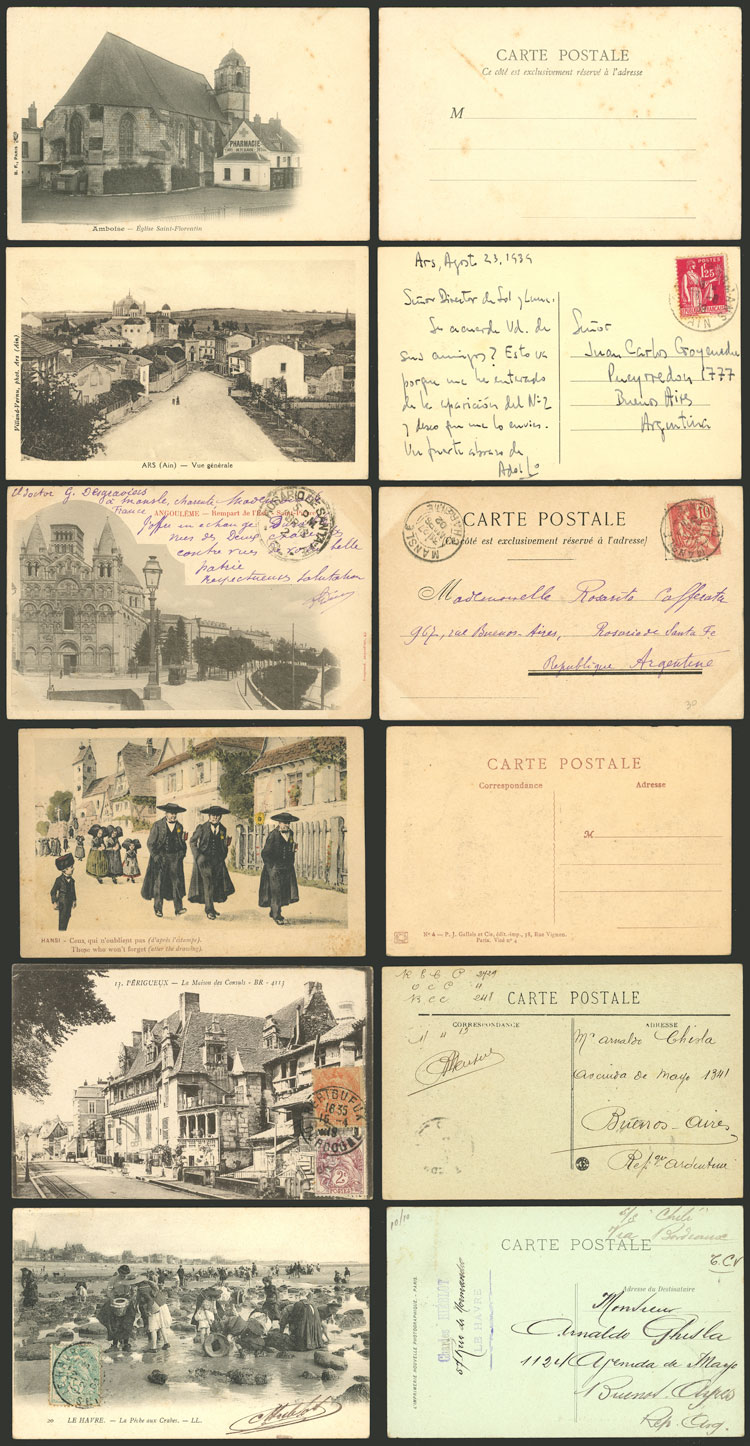 B. F., PARIS
PHARMACIE
Amboise — Église Saint-Florentin
CARTE POSTALE
Ce côté est exclusivement réservé à l'adresse
M
Villand-Vernu, phot. Ars (Ain)
ARS (Ain) — Vue générale
Ars, Agosto 23, 1939
Señor Director de Sol y Luna.
Se acuerda Vd. de
sus amigos? Esto va
porque me he enterado
de la aparición del Nº 2
y deseo que me lo envíes.
Un fuerte abrazo de
POSTES
1,25
Señor
Juan Carlos Goyeneche
Pueyrredon 1777
Buenos Aires
Argentina
Doctor G. Desgraviers
à Mansle, Charente
France
ANGOULÊME — Rempart de l'Est
contre vues
belle
patrie
respectueuses salutation
CARTE POSTALE
(Ce côté est exclusivement réservé à l'adresse)
MANSLE
10
Mademoiselle Rosarito Cafferata
967, rue Buenos-Aires, Rosario de Santa Fe
Republique Argentine
30
HANSI — Ceux qui n'oublient pas (d'après l'estampe).
Those who won't forget (after the drawing).
CARTE POSTALE
Correspondance Adresse
M
Nº 4 - P. J. Gallais et Cie, édit.-imp., 38, Rue Vignon.
Paris. Visé nº 4
13. PÉRIGUEUX — La Maison des Consuls - BR - 4113
PERIGUEUX
16 35
15 - 4
DORDOGNE
2c
POSTES
CARTE POSTALE
CORRESPONDANCE ADRESSE
Mr Arnaldo Ghisla
Avenida de Mayo 1341
Buenos-Aires
Rep. argentine
20 LE HAVRE. — La Pêche aux Crabes. — LL.
10/10
s/s "Chili"
via Bordeaux
CARTE POSTALE
T.C.V
L'IMPRIMERIE NOUVELLE PHOTOGRAPHIQUE - PARIS
LE HAVRE
Adresse du Destinataire
Monsieur
Arnaldo Ghisla
Avenida de Mayo
Buenos Ayres
Rep. Arg.